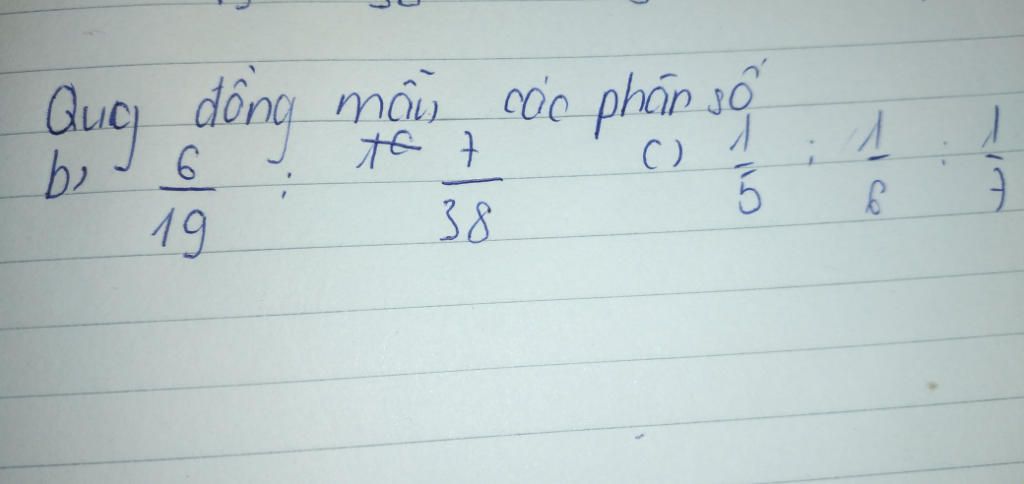 Quy đồng mẫu các phân số
b) 6/19 ; 7/38 c) 1/5 ; 1/6 ; 1/7